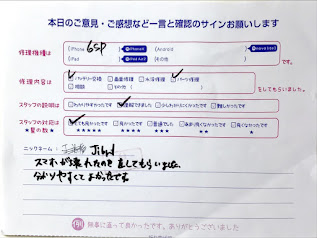 本日のご意見・ご感想など一言と確認のサインお願いします
修理機種は
iPhone 6SP
Android
iPad
その他
です。
修理内容は
バッテリー交換 画面修理 水没修理 パーツ修理
その他
をしてもらいました。
スタッフの説明は
わかりやすかったです 信頼できました 少しわかりにくかったです 難しかったです
スタッフの対応は
★星の数★
とても良かったです 良かったです 普通でした あまり良くなかったです 良くなかったです
★★★★★ ★★★★ ★★★ ★★ ★
ニックネーム:
スマホが壊れたのを直してもらいました。
分かりやすくてよかったです
例 無事に直って良かったです。ありがとうございました